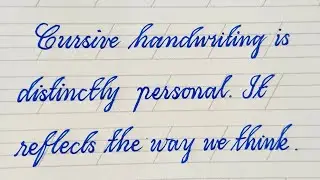 Cursive handwriting is
distinctly personal. It
reflects the way we think.